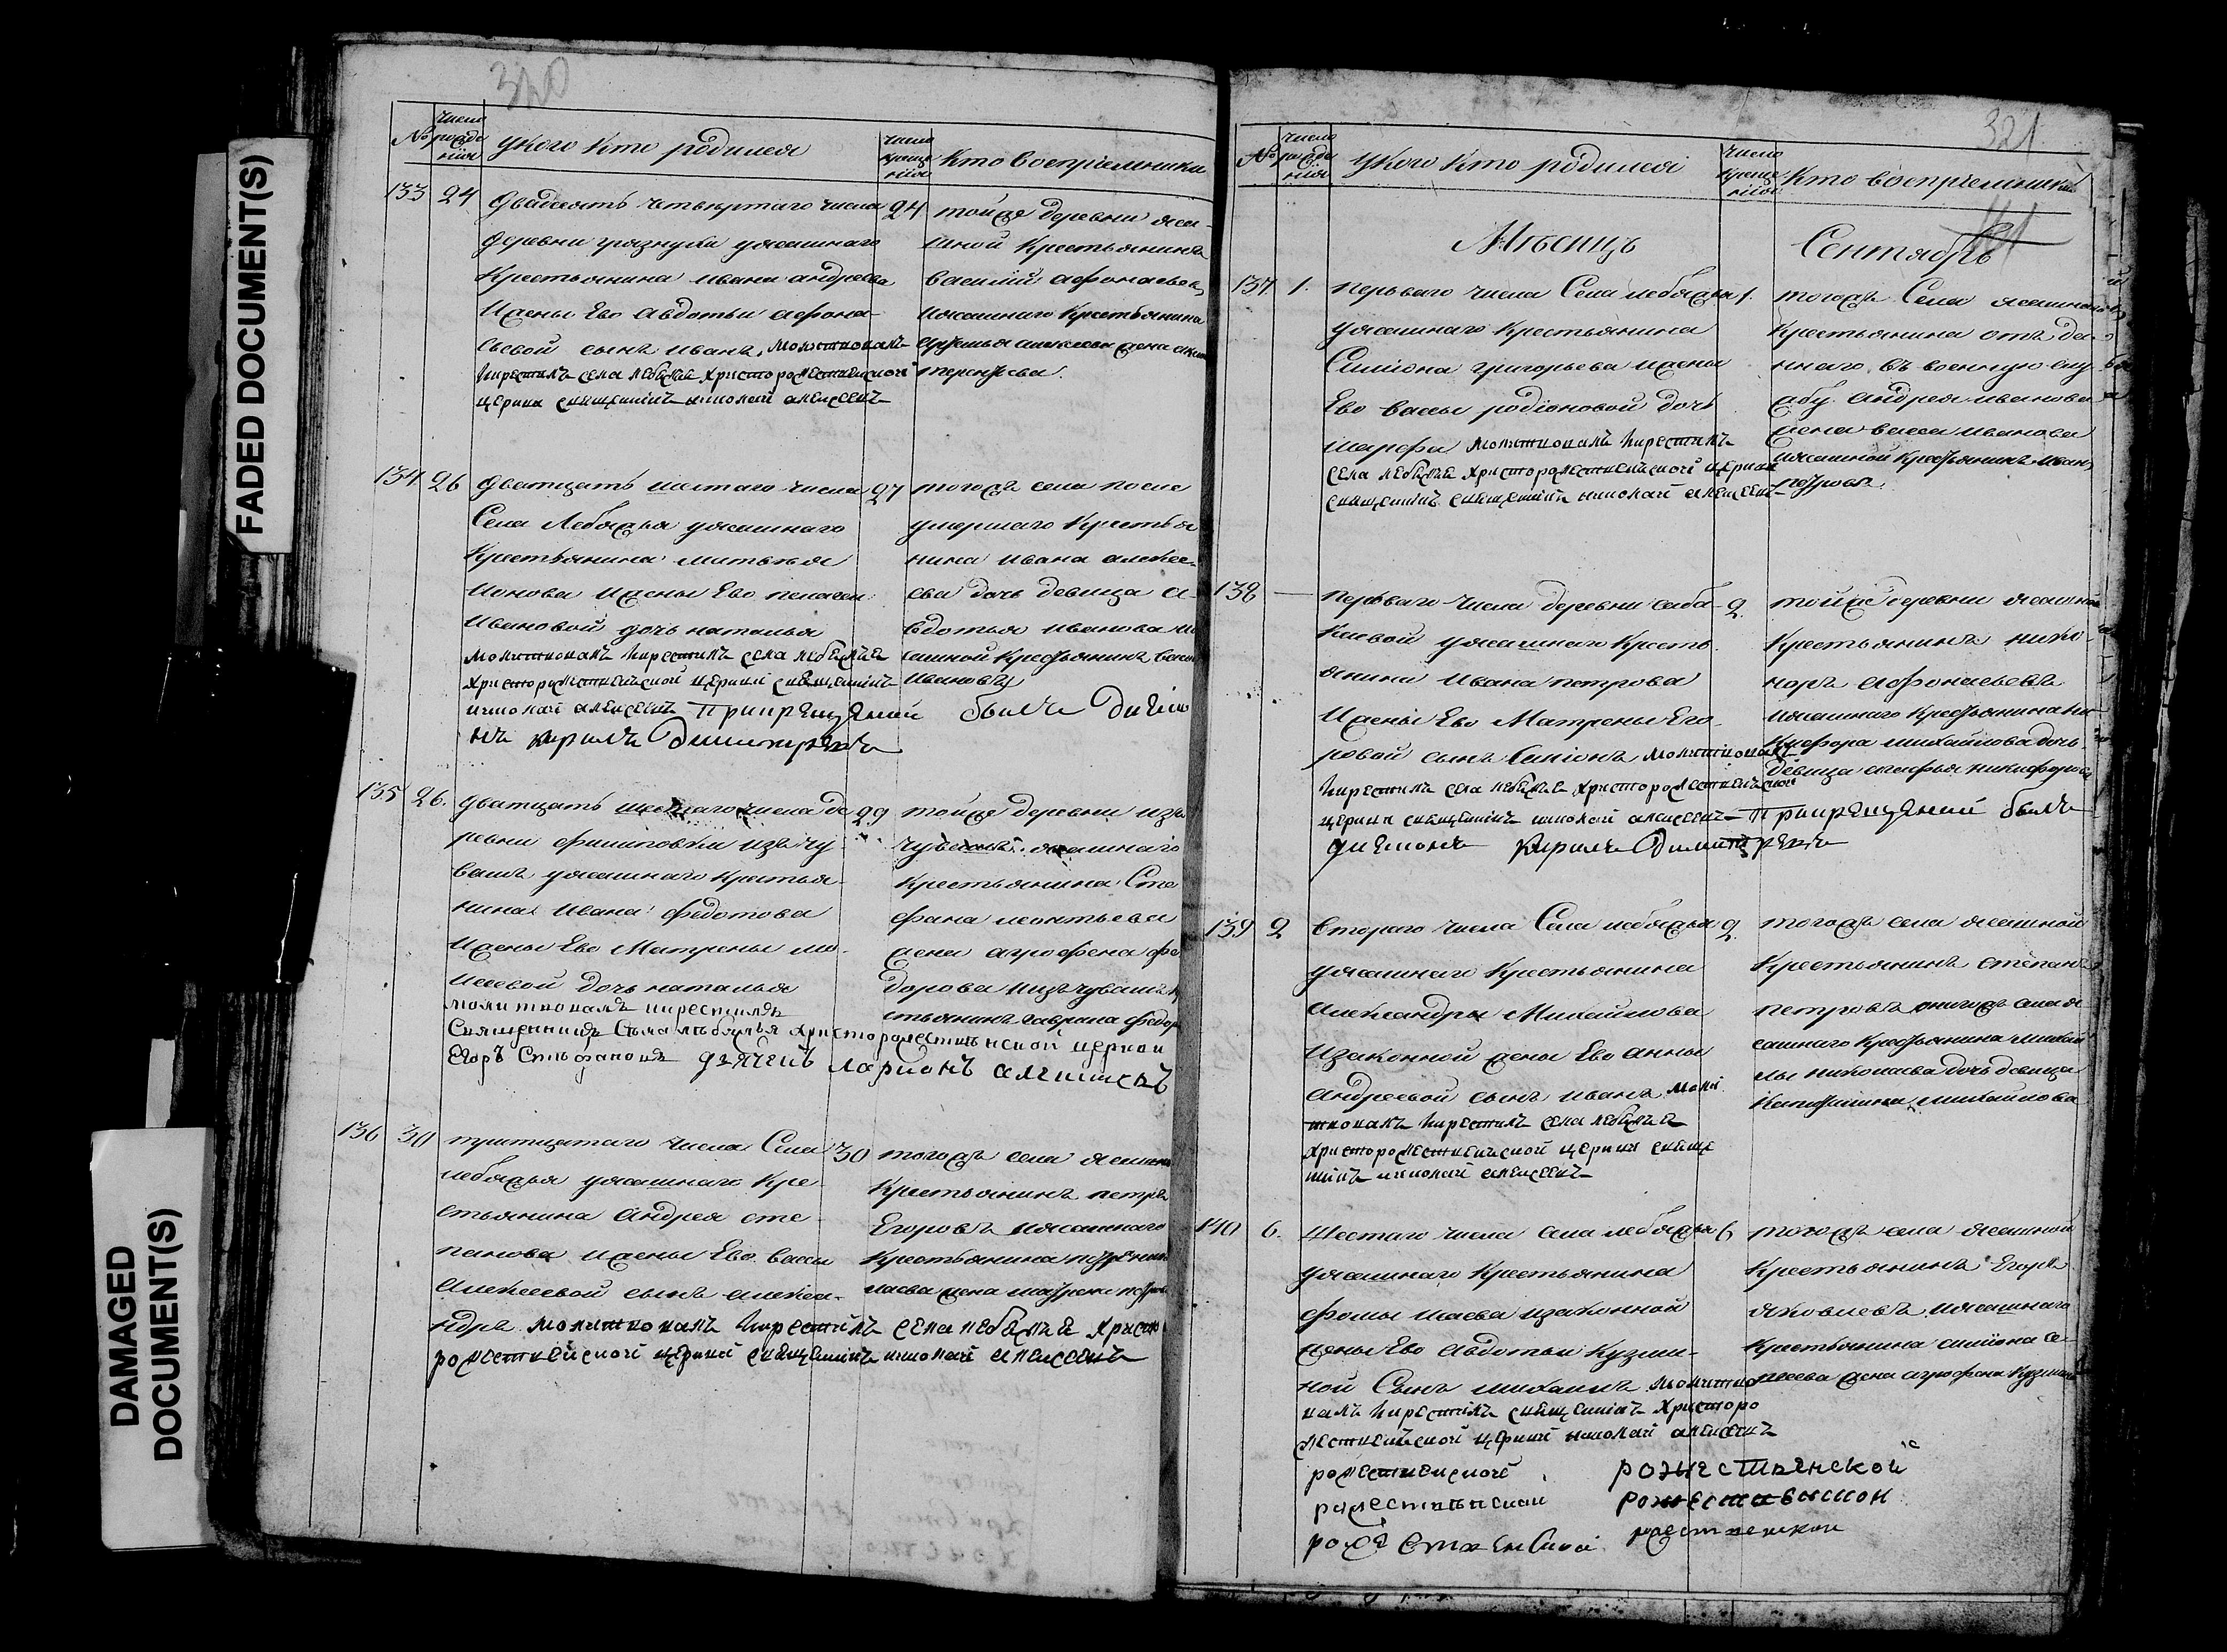 FADED DOCUMENT(S)
DAMAGED
DOCUMENT(S)
320
№
число
рожде
нiя
укого кто родился
число
креще
нiя
кто восприемники
133 24
двадцать четвертаго числа
деревни грязнухи уясашнаго
крестьянина ивана андреева
ижены Ево авдотьи афона-
сьевой сынъ иванъ, молитвовалъ
икрестилъ села лебежье христорожественской
церкви священникъ николай алексеевъ
24
тойже деревни яса-
шной крестьянинъ
василiй афонасьевъ
иясашнаго крестьянина
134 26
дватцать шестаго числа
Села Лебяжья уясашнаго
крестьянина
Ионова ижены Ево пелагеи
Ивановой дочь наталья
молитвовалъ икрестилъ села лебежье
христорожественской церкви священникъ
николай алексеевъ прикрещенiи былъ дияко
нъ кирилъ Димитреевъ
27
тогожъ села после
умершаго крестья
нина ивана алексее-
ва дочь девица а-
вдотья иванова
сашной крестьянинъ
Ивановъ
135 26.
дватцать шестаго числа де
ревни филиповки изъ чу-
вашъ уясашнаго крестья-
нина Ивана федотова
ижены Ево Матрены мо-
исеевой дочь наталья
молитвовалъ икрестилъ
Священникъ Села лебяжья христорожественской церкви
Егоръ Стефановъ дьячекъ ларионъ
29
тойже деревни изъ
чувашъ ясашнаго
крестьянина Сте
фана леонтьева
жена агрофена фе
дорова изъ чувашъ кр
стьянинъ гаврила
136 30
тритцатаго числа Села
лебяжья уясашнаго кре-
стьянина андрея сте-
панова ижены Ево вассы
Алексеевой сынъ алекса-
ндръ молитвовалъ икрестилъ села лебежье христо
рожественской церкви священникъ николай алексеевъ
30
тогожъ села ясашной
крестьянинъ петръ
Егоровъ иясашнаго
крестьянина
жена
321
№
число
рожде
нiя
укого кто родился
число
креще
нiя
кто восприемники
Мѣсяцъ Сентябрь
137 1.
перьваго числа Села лебяжья
уясашнаго крестьянина
Симiона григорьева ижены
Ево вассы родiоновой дочь
марфа молитвовалъ икрестилъ
села лебежье христорожественской церкви
священникъ священникъ николай алексеевъ
1.
тогожъ Села ясашнаго
крестьянина отъ да-
ннаго въ военную слу
жбу андрея иванова
жена васса иванова
иясашной крестьянинъ иванъ
петровъ
138 —
перьваго числа деревни саба-
каевой уясашнаго кресть
янина ивана петрова
ижены Ево Матрены Его-
ровой сынъ Симiонъ молитвовалъ
икрестилъ села лебежье христорожественской
церкви священникъ николай алексеевъ прикрещенiи былъ
дияконъ кирилъ Димитреевъ
2
тойже деревни ясашной
крестьянинъ ника-
норъ афонасьевъ
иясашнаго крестьянина ни-
кифора михайлова дочь
девица никифорова
139 2
втораго числа Села лебяжья
уясашнаго крестьянина
Александра Михайлова
изаконной жены Ево анны
Андреевой сынъ иванъ моли
твовалъ икрестилъ села лебежье
христорожественской церкви свяще
нникъ николай алексеевъ
2
тогожъ села ясашной
крестьянинъ степанъ
петровъ итогожъ села я
сашнаго крестьянина михай
лы николаева дочь девица
Капитолина михайлова
140 6.
Шестаго числа села лебяжья
уясашнаго крестьянина
фомы исаева изаконной
жены Ево авдотьи кузми-
ной Сынъ михаилъ молитво
валъ икрестилъ священникъ христоро
жественской церкви николай алексеевъ
6
тогожъ села ясашной
крестьянинъ Егоръ
яковлевъ иясашнаго
крестьянина симiона се-
жена агрофена кузмина
рожественской рожественской
рожественской рожественской
рожественской рожественской